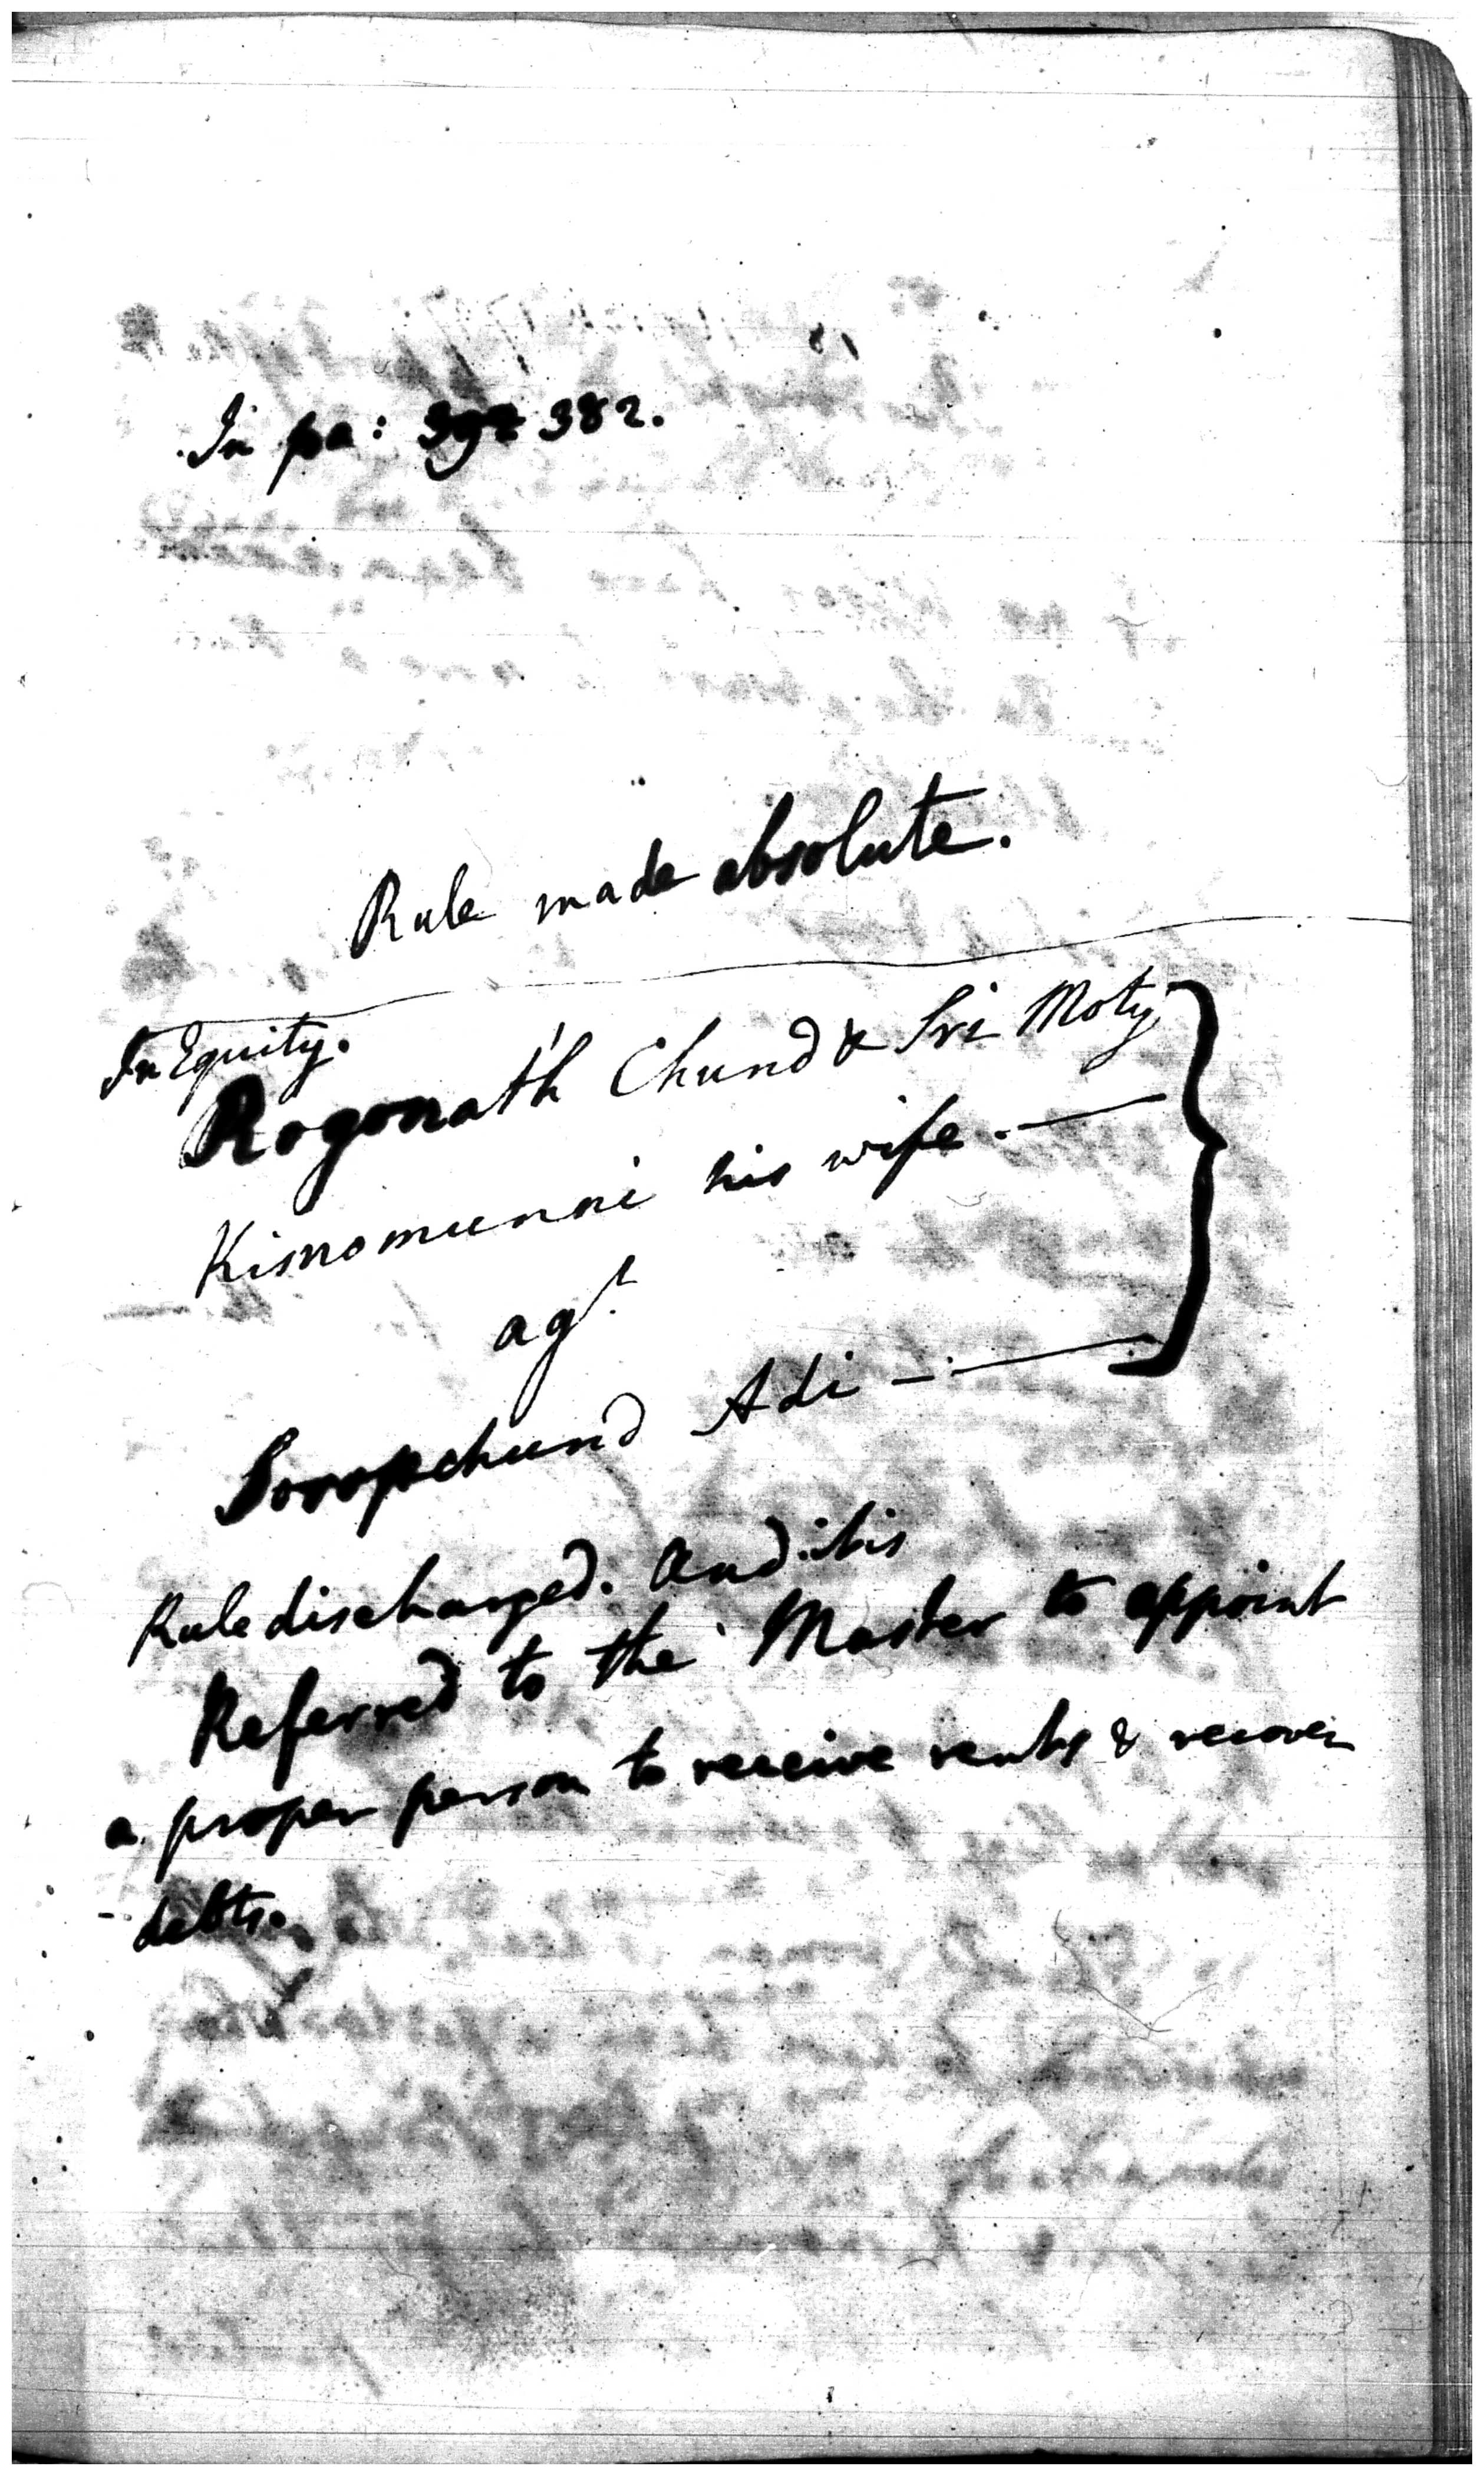 In pa: 382.
Rule made absolute.
In Equity.
Rogonath Chund & Sri Moty
Kisnomunni his wife. —
agt.
Soroopchund Adi — —
Rule discharged. And it is
Referred to the Master to appoint
a proper person to receive rents & recover
debts.